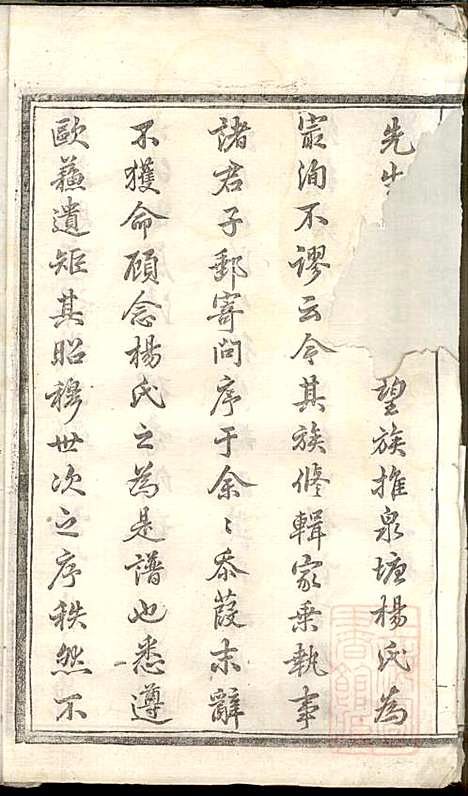 先生望族推泉塘楊氏為
最洵不謬云今其族修輯家乘執事
諸君子郵寄問序于余〻忝葭末辭
不獲命顧念楊氏之為是譜也悉遵
歐蘇遺矩其昭穆世次之序秩然不